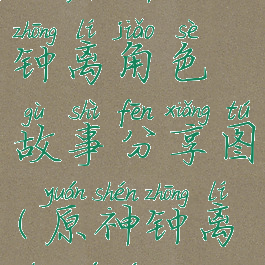 zhōng lí jiǎo sè
钟离角色
gù shì fēn xiǎng tú
故事分享图
yuán shén zhōng lí
(原神钟离